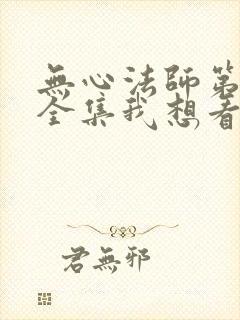 無心法師第
全集我想看
君無邪